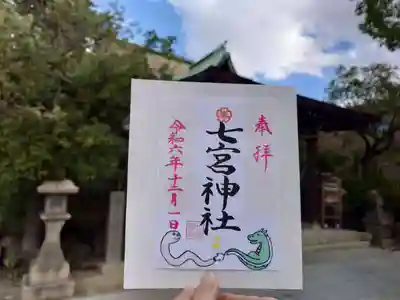 奉拝
七宮神社
令和六年十二月一日